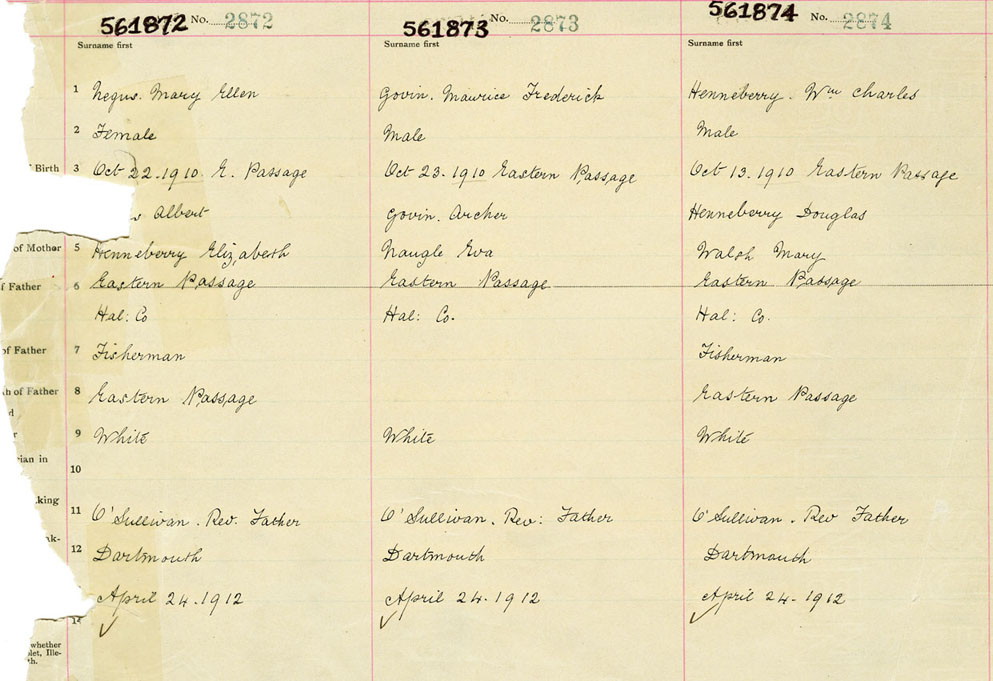 561872 No. 2872 561873 No. 2873 561874 No. 2874
Surname first Surname first Surname first
1 Negus. Mary Ellen Govin. Maurice Frederick Henneberry. Wm Charles
2 Female Male Male
Birth 3 Oct 22.1910. E. Passage Oct 23.1910 Eastern Passage Oct 13.1910 Eastern Passage
Albert Govin. Archer Henneberry Douglas
of Mother 5 Henneberry Elizabeth Naugle Eva Walsh Mary
f Father 6 Eastern Passage Eastern Passage Eastern Passage
Hal: Co Hal: Co. Hal: Co.
of Father 7 Fisherman Fisherman
h of Father 8 Eastern Passage Eastern Passage
9 White White White
ian in 10
king 11 O'Sullivan. Rev. Father O'Sullivan. Rev: Father O'Sullivan. Rev Father
12 Dartmouth Dartmouth Dartmouth
April 24.1912 April 24.1912 April 24.1912
14
whether
let, Ille-
th.